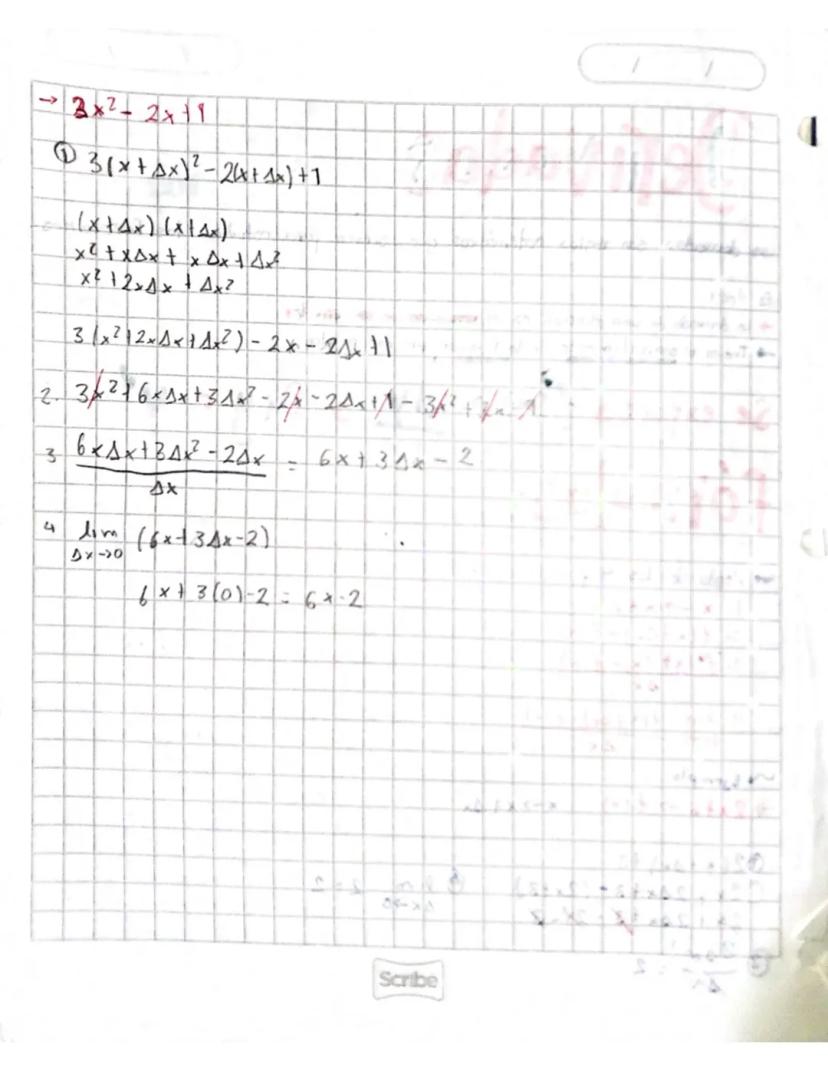 → 3x² - 2x + 1
① 3(x + Δx)² - 2(x + Δx) + 1
(x + Δx) (x + Δx)
x² + xΔx + xΔx + Δx²
x² + 2xΔx + Δx²
3(x² + 2xΔx + Δx²) - 2x - 2Δx + 1
2. 3x² + 6xΔx + 3Δx² - 2x - 2Δx + 1 - 3x² + 2x - 1
3 6xΔx + 3Δx² - 2Δx = 6x + 3Δx - 2
Δx
4 lim (6x + 3Δx - 2)
Δx→0
6x + 3(0) - 2 = 6x - 2
Scribe